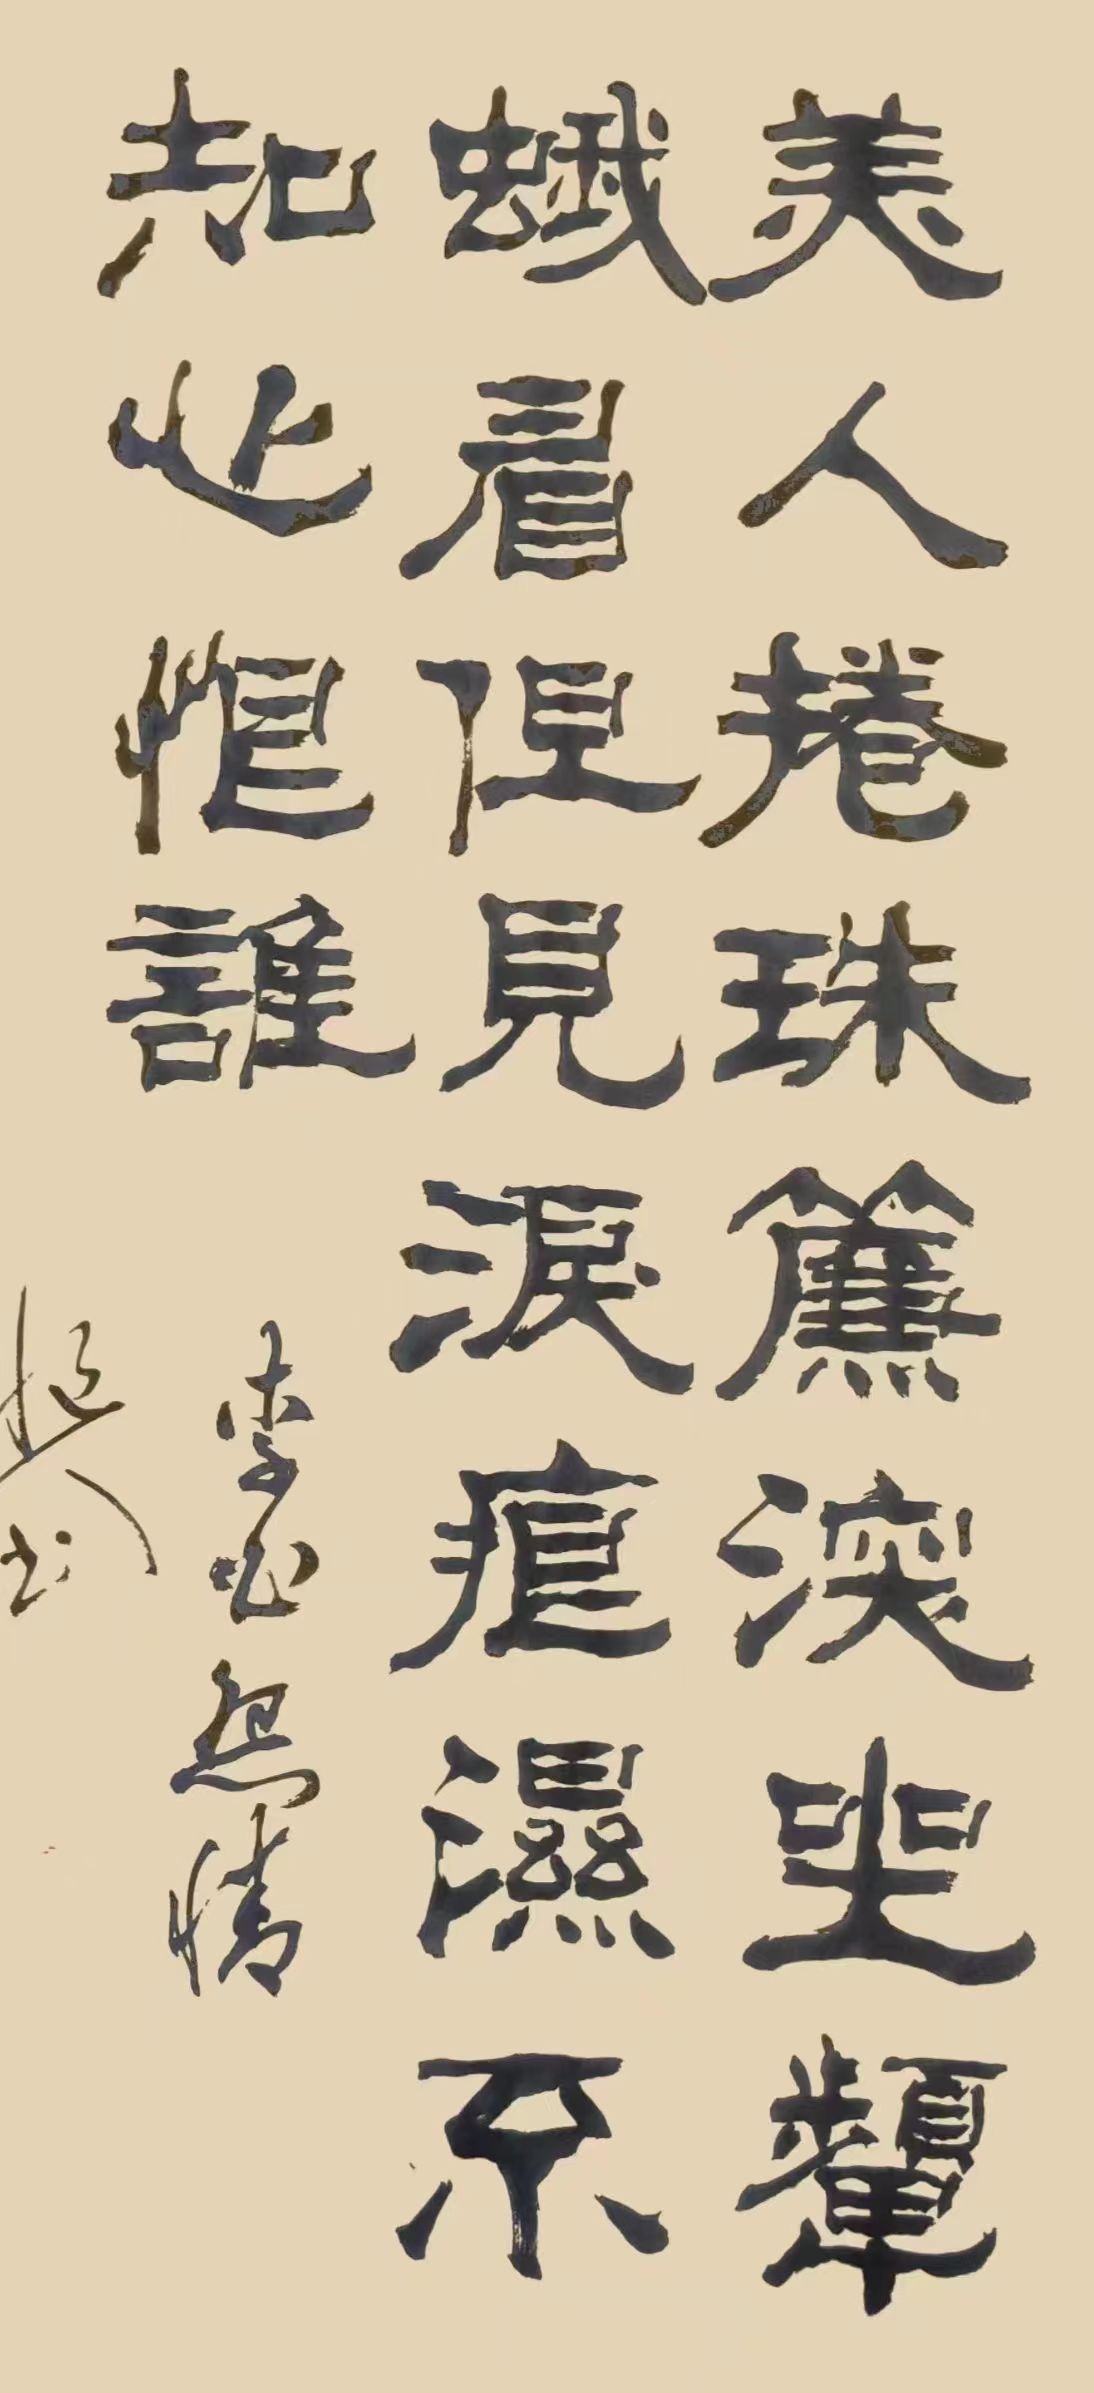 美人捲珠簾深坐顰
蛾眉但見淚痕濕不
知心恨誰
李白怨情
書